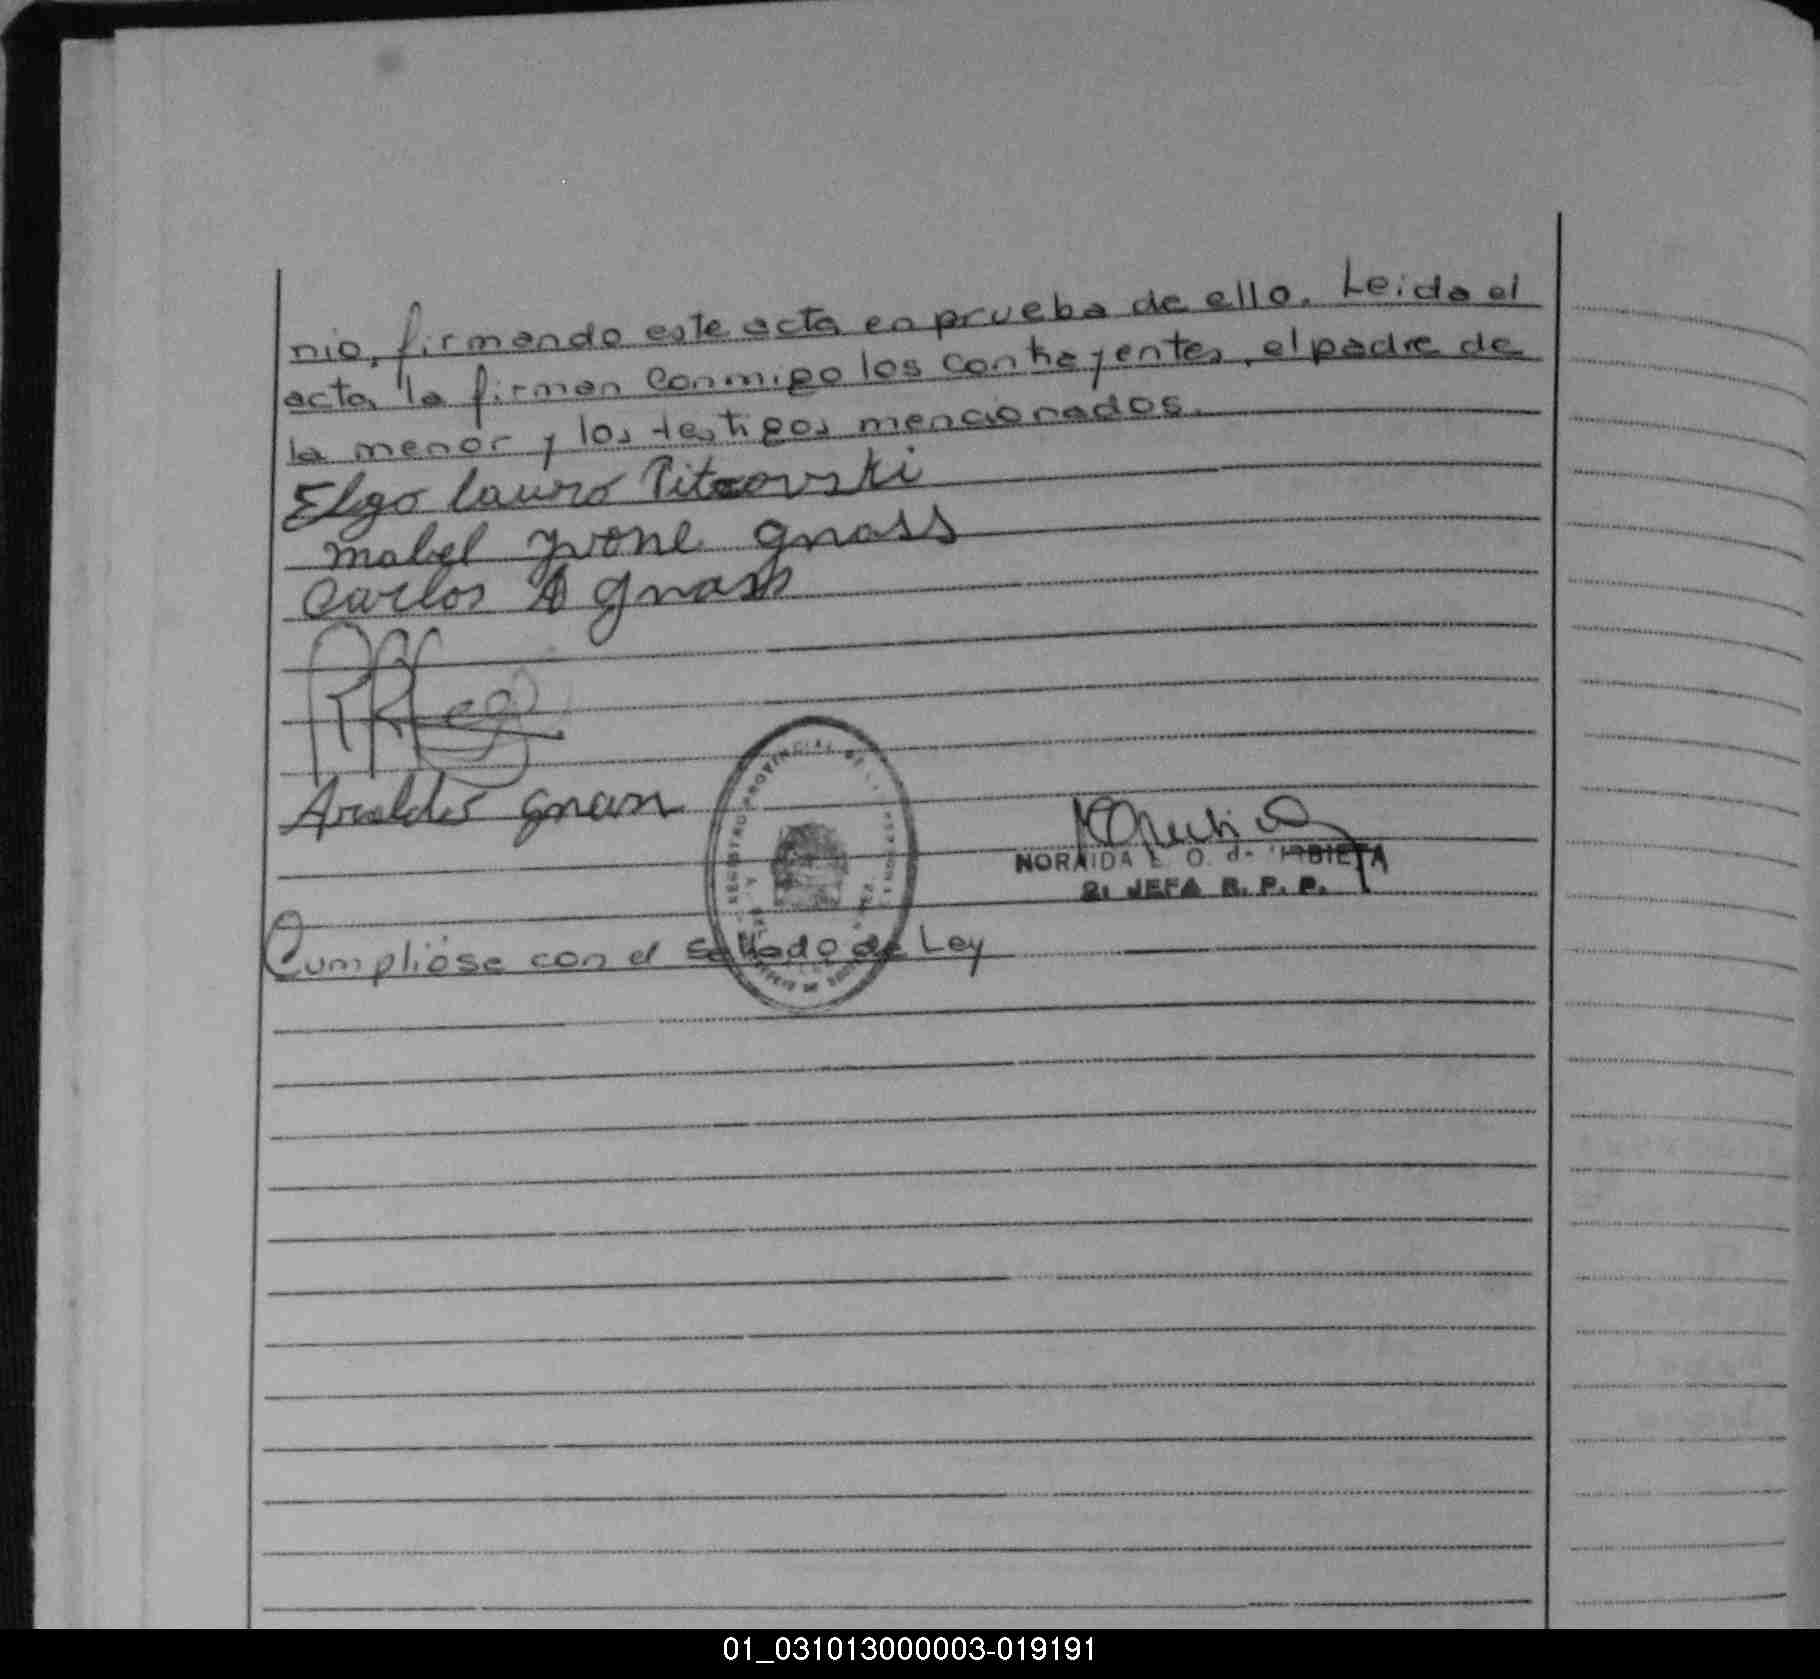 nio, firmando este acta en prueba de ello. Leida el
acta, la firman conmigo los contrayentes, el padre de
la menor y los testigos mencionados.
Elgo Lauro Pitcovski
Mabel Yvone Gnass
Carlos A Gnass
Araldo Gnass
REGISTRO PROVINCIAL DE
NORAIDA E. O. de
2a JEFA R. P. P.
Cumplióse con el sellado de Ley
01_031013000003-019191